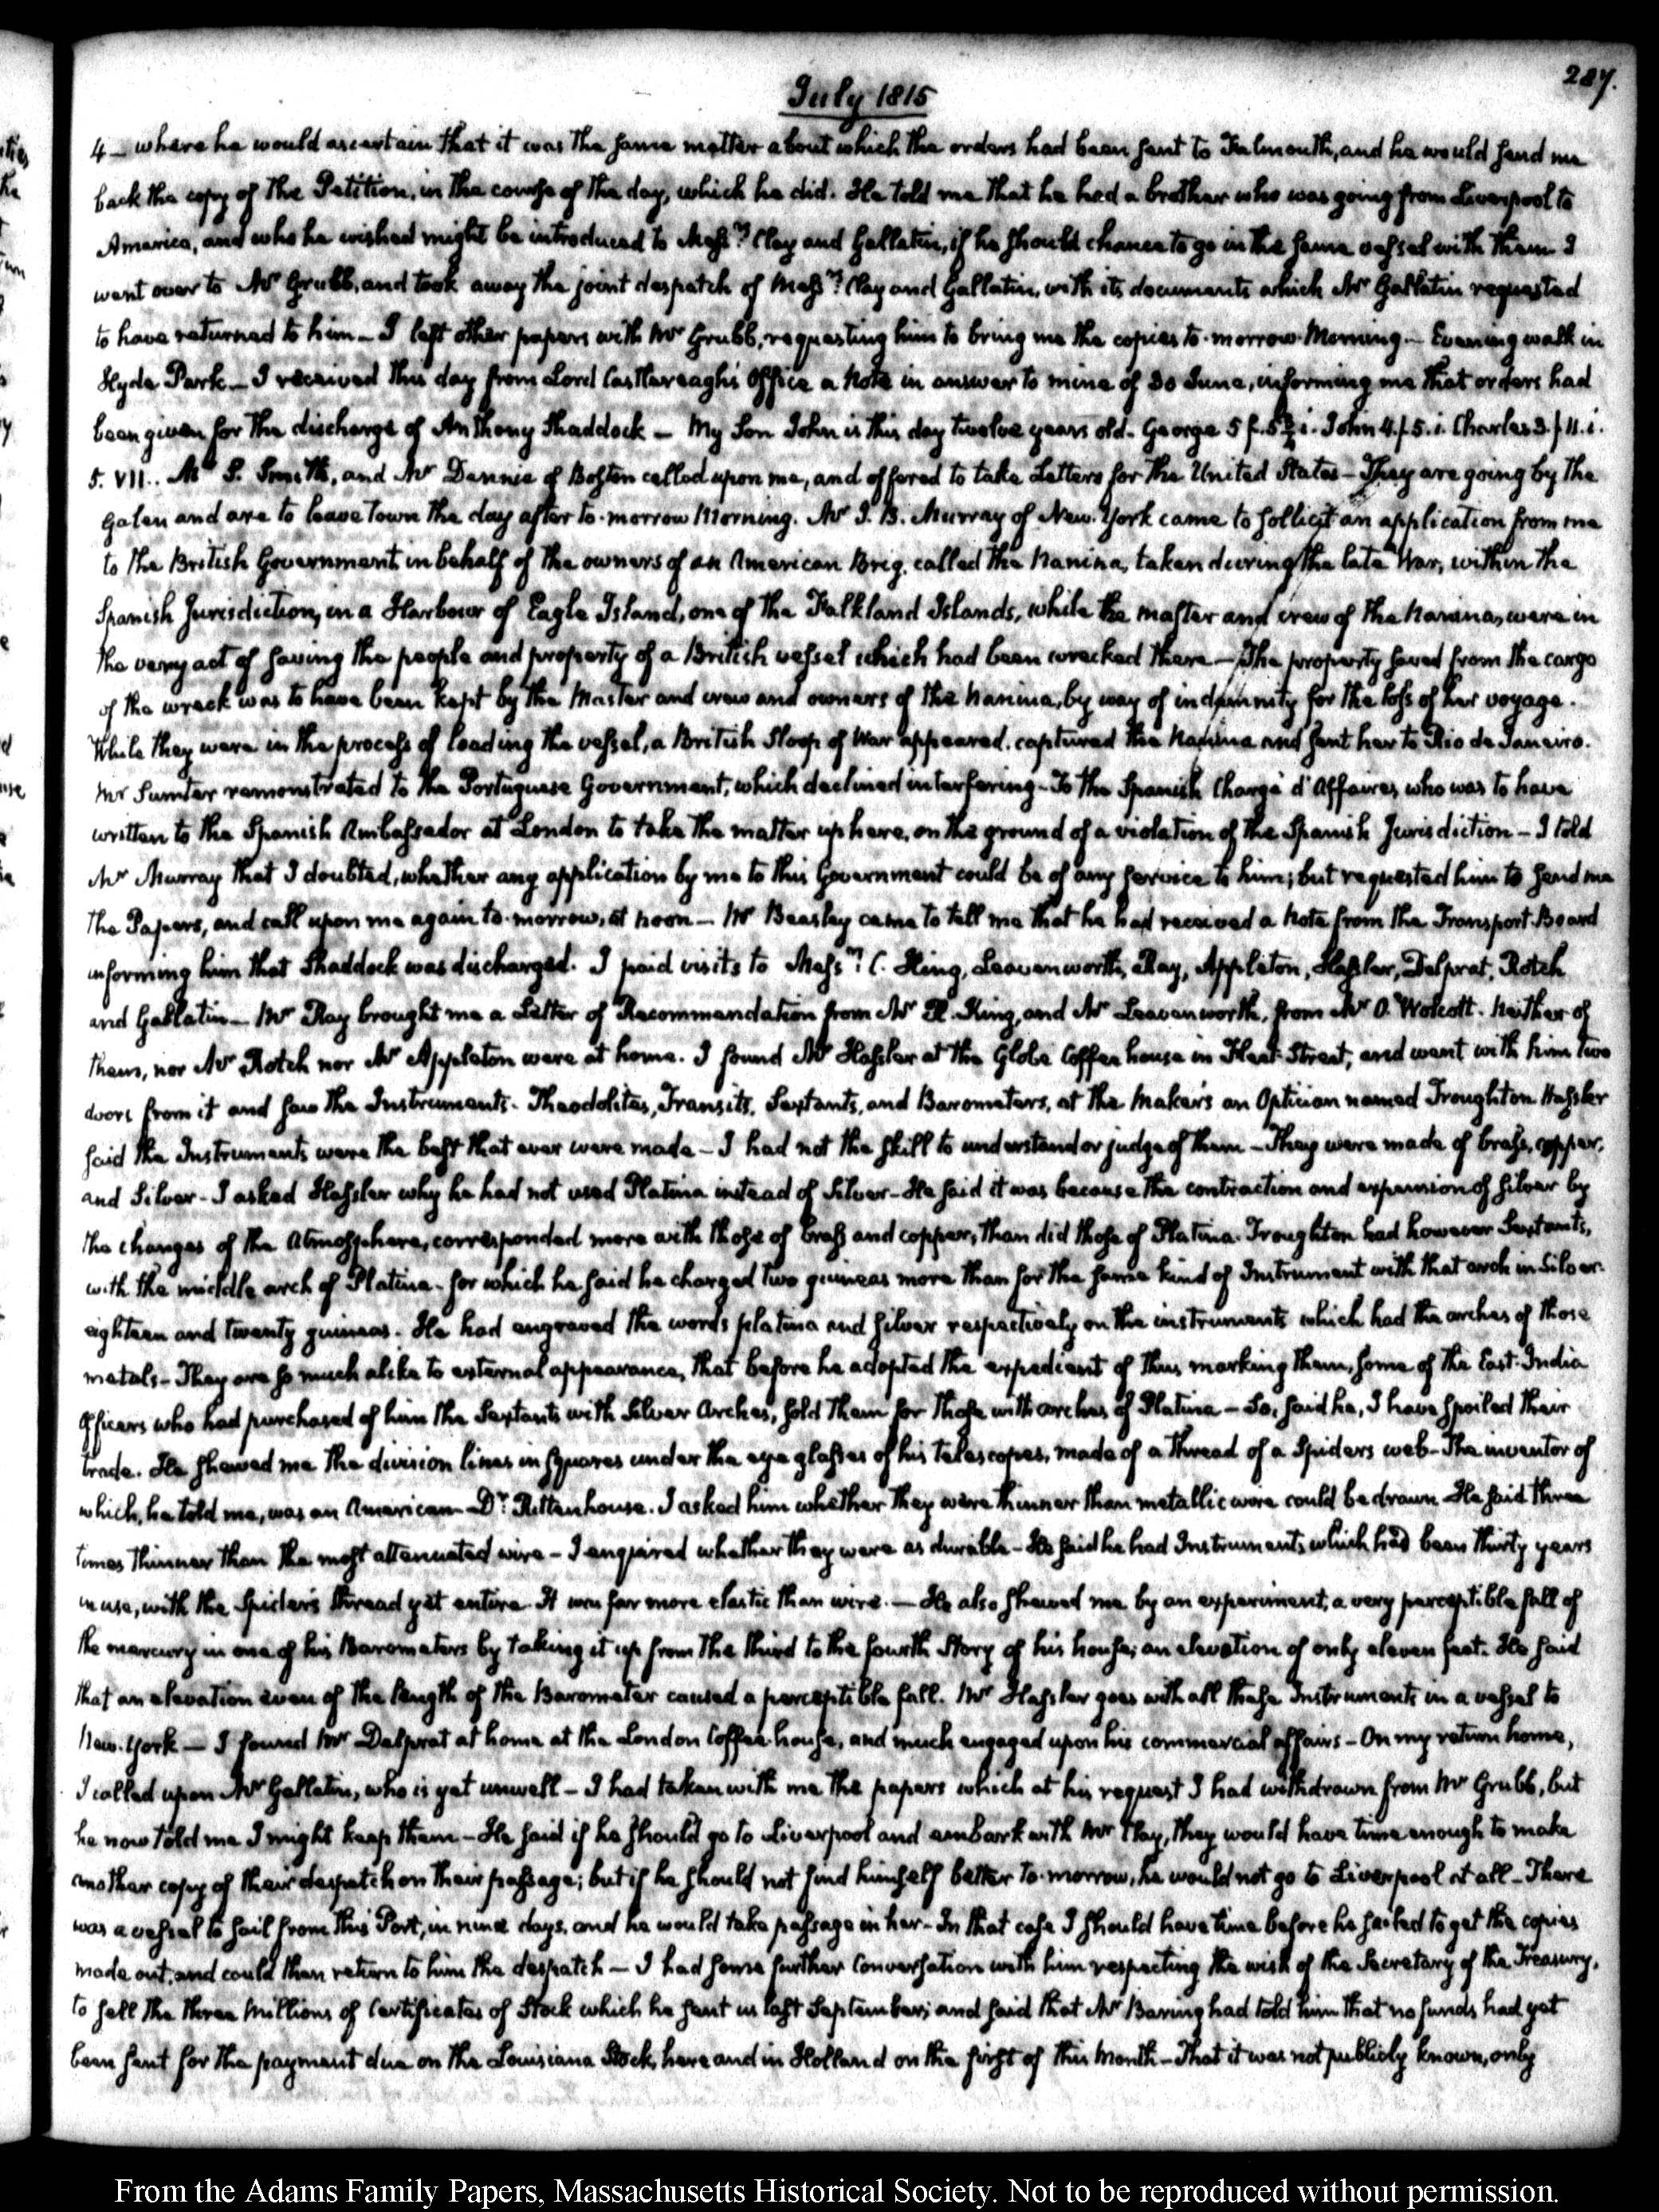 287.
July 1815
4 — where he would ascertain that it was the same matter about which the orders had been sent to Falmouth, and he would send me
back the copy of the Petition, in the course of the day, which he did. He told me that he had a brother who was going from Liverpool to
America, and who he wished might be introduced to Messrs. Clay and Gallatin, if he should chance to go in the same vessel with them. I
went over to Mr Grubb, and took away the joint despatch of Messrs. Clay and Gallatin, with its documents which Mr Gallatin requested
to have returned to him — I left other papers with Mr Grubb, requesting him to bring me the copies to-morrow Morning — Evening walk in
Hyde Park — I received this day from Lord Castlereagh's Office a Note in answer to mine of 30 June, informing me that orders had
been given for the discharge of Anthony Shaddock — My Son John is this day twelve years old. George 5 f. 5¾ i. John 4. f. 5. i. Charles 3. f. 11. i.
5. VII.. Mr S. Smith, and Mr Dennie of Boston called upon me, and offered to take Letters for the United States — They are going by the
Galen and are to leave town the day after to-morrow Morning. Mr J. B. Murray of New-York came to sollicit an application from me
to the British Government in behalf of the owners of an American Brig, called the Nanina, taken during the late War, within the
Spanish Jurisdiction, in a Harbour of Eagle Island, one of the Falkland Islands, while the master and crew of the Nanina, were in
the very act of saving the people and property of a British vessel which had been wrecked there — The property saved from the cargo
of the wreck was to have been kept by the Master and crew and owners of the Nanina, by way of indemnity for the loss of her voyage.
While they were in the process of loading the vessel, a British Sloop of War appeared, captured the Nanina and sent her to Rio de Janeiro.
Mr Sumter remonstrated to the Portuguese Government, which declined interfering — To the Spanish Chargé d'Affaires, who was to have
written to the Spanish Ambassador at London to take the matter up here, on the ground of a violation of the Spanish Jurisdiction — I told
Mr Murray that I doubted, whether any application by me to this Government could be of any service to him; but requested him to send me
the Papers, and call upon me again to-morrow, at noon — Mr Beasley came to tell me that he had received a Note from the Transport-Board
informing him that Shaddock was discharged. I paid visits to Messrs. C. King, Leavenworth, Ray, Appleton, Hassler, Delprat, Rotch
and Gallatin — Mr Ray brought me a Letter of Recommendation from Mr R. King, and Mr Leavenworth, from Mr O. Wolcott. Neither of
them, nor Mr Rotch nor Mr Appleton were at home. I found Mr Hassler at the Globe Coffee house in Fleet-Street, and went with him two
doors from it and saw the Instruments. Theodolites, Transits, Sextants, and Barometers, at the Maker's an Optician named Troughton Hassler
said the Instruments were the best that ever were made — I had not the skill to understand or judge of them — They were made of brass, copper,
and Silver — I asked Hassler why he had not used Platina instead of Silver — He said it was because the contraction and expansion of silver by
the changes of the Atmosphere, corresponded more with those of brass and copper, than did those of Platina. Troughton had however Sextants,
with the middle arch of Platina — for which he said he charged two guineas more than for the same kind of Instrument with that arch in Silver.
eighteen and twenty guineas. He had engraved the words platina and silver respectively on the instruments which had the arches of those
metals — They are so much alike to external appearance, that before he adopted the expedient of thus marking them, some of the East-India
Officers who had purchased of him the Sextants with Silver Arches, sold them for those with arches of Platina — So, said he, I have spoiled their
trade. He shewed me the division lines in squares under the eye glasses of his telescopes, made of a thread of a Spiders web — The inventor of
which, he told me, was an American — Dr. Rittenhouse. I asked him whether they were thinner than metallic wire could be drawn He said three
times thinner than the most attenuated wire — I enquired whether they were as durable — He said he had Instruments which had been thirty years
in use, with the Spider's thread yet entire. It was far more elastic than wire. — He also shewed me by an experiment, a very perceptible fall of
the mercury in one of his Barometers by taking it up from the third to the fourth Story of his house; an elevation of only eleven feet. He said
that an elevation even of the length of the Barometer caused a perceptible fall. Mr Hassler goes with all these Instruments in a vessel to
New-York — I found Mr Delprat at home at the London Coffee-house, and much engaged upon his commercial affairs — On my return home,
I called upon Mr Gallatin, who is yet unwell — I had taken with me the papers which at his request I had withdrawn from Mr Grubb, but
he now told me I might keep them — He said if he should go to Liverpool and embark with Mr Clay, they would have time enough to make
another copy of their despatch on their passage; but if he should not find himself better to-morrow, he would not go to Liverpool at all — There
was a vessel to sail from this Port, in nine days, and he would take passage in her — In that case I should have time before he sailed to get the copies
made out, and could then return to him the despatch — I had some further Conversation with him respecting the wish of the Secretary of the Treasury,
to sell the three Millions of Certificates of Stock which he sent us last September; and said that Mr Baring had told him that no funds had yet
been sent for the payment due on the Louisiana Stock, here and in Holland on the first of this Month — That it was not publicly known, only
From the Adams Family Papers, Massachusetts Historical Society. Not to be reproduced without permission.